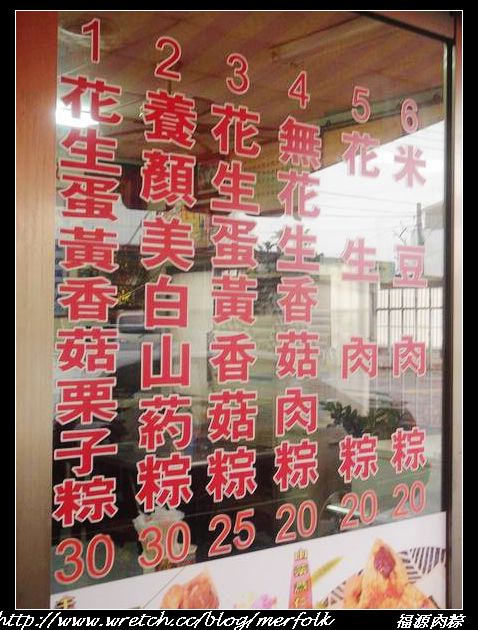 1 花生蛋黃香菇栗子粽 30
2 養顏美白山葯粽 30
3 花生蛋黃香菇粽 25
4 無花生香菇肉粽 20
5 花生肉粽 20
6 米豆肉粽 20
http://www.wretch.cc/blog/merfolk
福源肉粽